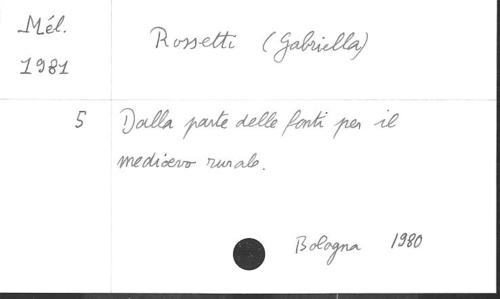 Mél.
1981
Rossetti (Gabriella)
5 Dalla parte delle fonti per il
medioevo rurale.
Bologna 1980